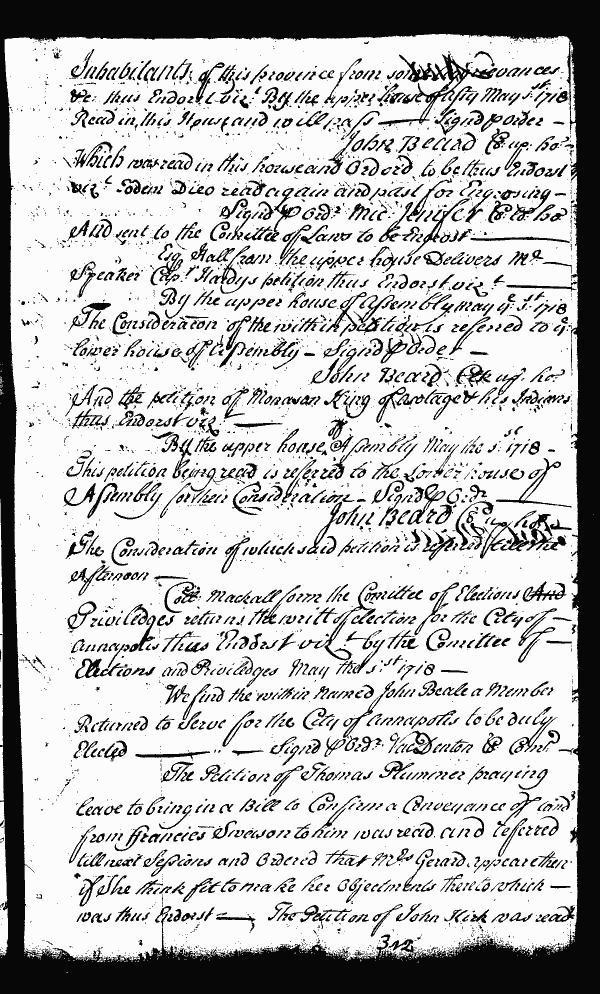 Inhabitants of this province from som Grievances
&c. thus Endorst viz.t By the upper house of assty May 1st 1718
Read in this House and will pass — Signd p order —
John Beard Cl. up. ho
Which was read in this house and Ordrd to be thus Endorst
viz.t Eodem Dieo read again and past for Engrossing —
Signd p Ordr Mic. Jenifer Cl lo ho
And sent to the Comittee of Laws to be Engrost —
Esq. Hall from the upper house Delivers Mr
Speaker Capt Hardys petition thus Endorst viz.t —
By the upper house of assembly may ye 1st 1718
The Consideracon of the within petition is referred to ye
lower house of assembly — Signd p Order —
John Beard Clk up. ho.
And the petition of King of & his Indians
thus Endorst viz —
By the upper house of Assembly May the 1st 1718 —
This petition being read is referred to the Lower house of
Assembly for their Consideration — Signd p Ordr —
John Beard Cl up ho
The Consideration of which said petition is referred till the
Afternoon —
Coll. Mackall form the Comittee of Elections And
Priviledges returns the writt of election for the City of —
annapolis thus Endorst viz.t by the Comittee of —
Elections and Priviledges May the 1st 1718 —
We find the within Named John Beale a Member
Returned to Serve for the City of annapolis to be duly
Elected — Signd p Ordr Val Denton Cl Comr
The Petition of Thomas Plummer praying
leave to bring in a Bill to Confirm a Conveyance of land
from Francies Swason to him was read and referred
till next Sessions and Ordered that Mrs Gerard appear then
if She think fit to make her Objectments thereto which —
was thus Endorst —, The Petition of John Kirk was read
342